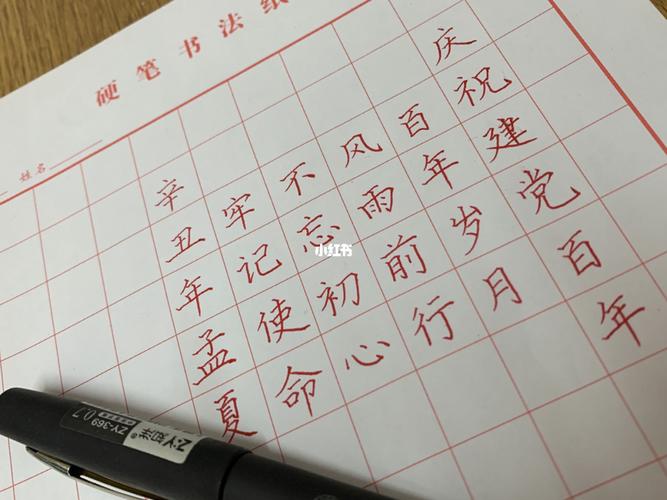 硬笔书法纸
姓名
庆祝建党百年
百年岁月
风雨前行
不忘初心
牢记使命
辛丑年孟夏
小红书
ZY-369 0.7